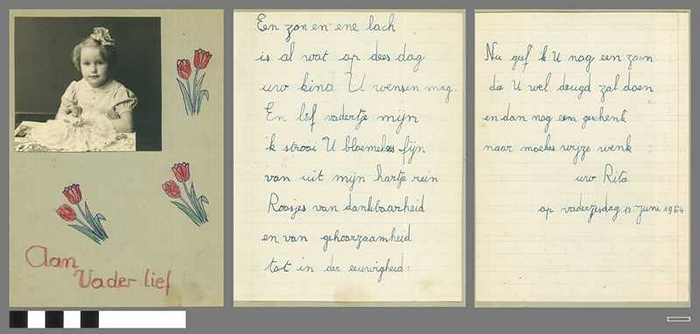 Aan
Vader lief
Een zon en ene lach
is al wat op dees dag
uw kind U wensen mag.
En lief vadertje mijn
ik strooi U bloemekes fijn
van uit mijn hartje rein
Roosjes van dankbaarheid
en van gehoorzaamheid
tot in der eeuwigheid.
Nu geef ik U nog een zoen
da U wel deugd zal doen
en dan nog een geschenk
naar moekes wijze wenk
uw Rita
op vaderjesdag juni 1964